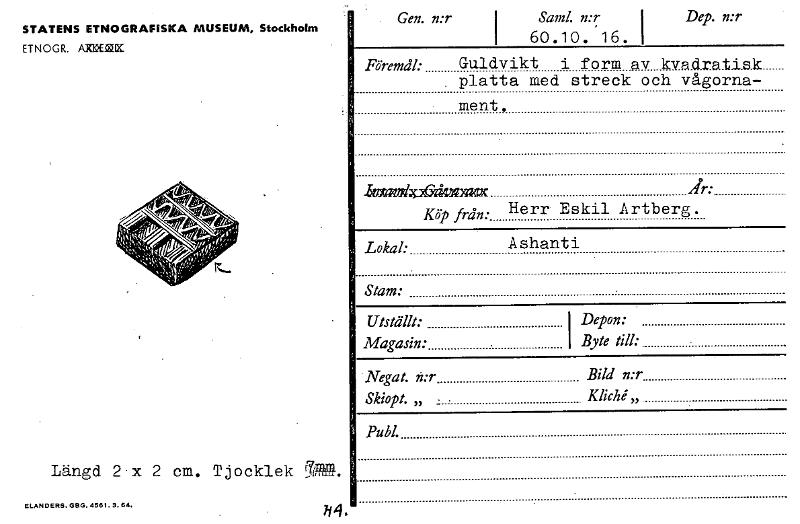 STATENS ETNOGRAFISKA MUSEUM, Stockholm
ETNOGR.
Längd 2 x 2 cm. Tjocklek 7mm.
ELANDERS, GBG. 4561. 3. 64.
H4.
Gen. n:r
Saml. n:r
Dep. n:r
60.10. 16.
Föremål: Guldvikt i form av kvadratisk
platta med streck och vågorna-
ment.
År:
Köp från: Herr Eskil Artberg.
Lokal: Ashanti
Stam:
Utställt: Depon:
Magasin: Byte till:
Negat. n:r Bild n:r
Skiopt. „ Kliché „
Publ.